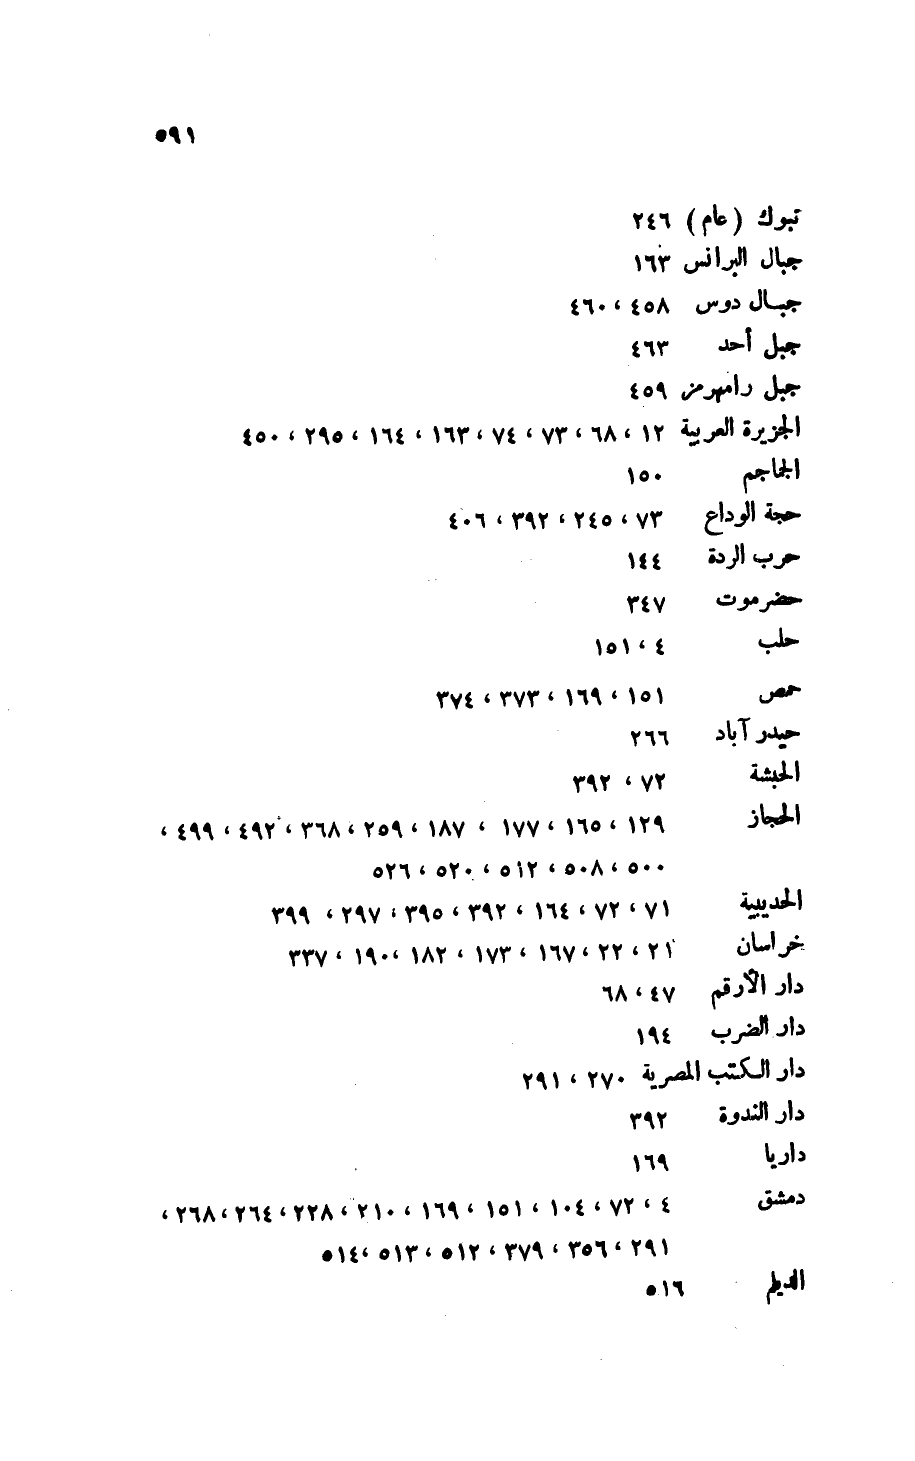 ٥٩١
تبوك (عام) ٢٤٦
جبال البرانس ١٦٣
جبال دوس ٤٥٨ ، ٤٦٠
جبل أحد ٤٦٣
جبل رامهرمز ٤٥٩
الجزيرة العربية ١٢ ، ٦٨ ، ٧٣ ، ٧٤ ، ١٦٣ ، ١٦٤ ، ٢٩٥ ، ٤٥٠
الجماجم ١٥٠
حجة الوداع ٧٣ ، ٢٤٥ ، ٣٩٢ ، ٤٠٦
حرب الردة ١٤٤
حضرموت ٣٤٧
حلب ٤ ، ١٥١
حمص ١٥١ ، ١٦٩ ، ٣٧٣ ، ٣٧٤
حيدر آباد ٢٦٦
الحبشة ٧٢ ، ٣٩٢
الحجاز ١٢٩ ، ١٦٥ ، ١٧٧ ، ١٨٧ ، ٢٥٩ ، ٣٦٨ ، ٤٩٢ ، ٤٩٩ ،
٥٠٠ ، ٥٠٨ ، ٥١٢ ، ٥٢٠ ، ٥٢٦
الحديبية ٧١ ، ٧٢ ، ١٦٤ ، ٣٩٢ ، ٣٩٥ ، ٢٩٧ ، ٣٩٩
خراسان ٢١ ، ٢٢ ، ١٦٧ ، ١٧٣ ، ١٨٢ ، ١٩٠ ، ٣٣٧
دار الأرقم ٤٧ ، ٦٨
دار الضرب ١٩٤
دار الكتب المصرية ٢٧٠ ، ٢٩١
دار الندوة ٣٩٢
داريا ١٦٩
دمشق ٤ ، ٧٢ ، ١٠٤ ، ١٥١ ، ١٦٩ ، ٢١٠ ، ٢٢٨ ، ٢٦٤ ، ٢٦٨ ،
٢٩١ ، ٣٥٦ ، ٣٧٩ ، ٥١٢ ، ٥١٣ ، ٥١٤
الديلم ٥١٦